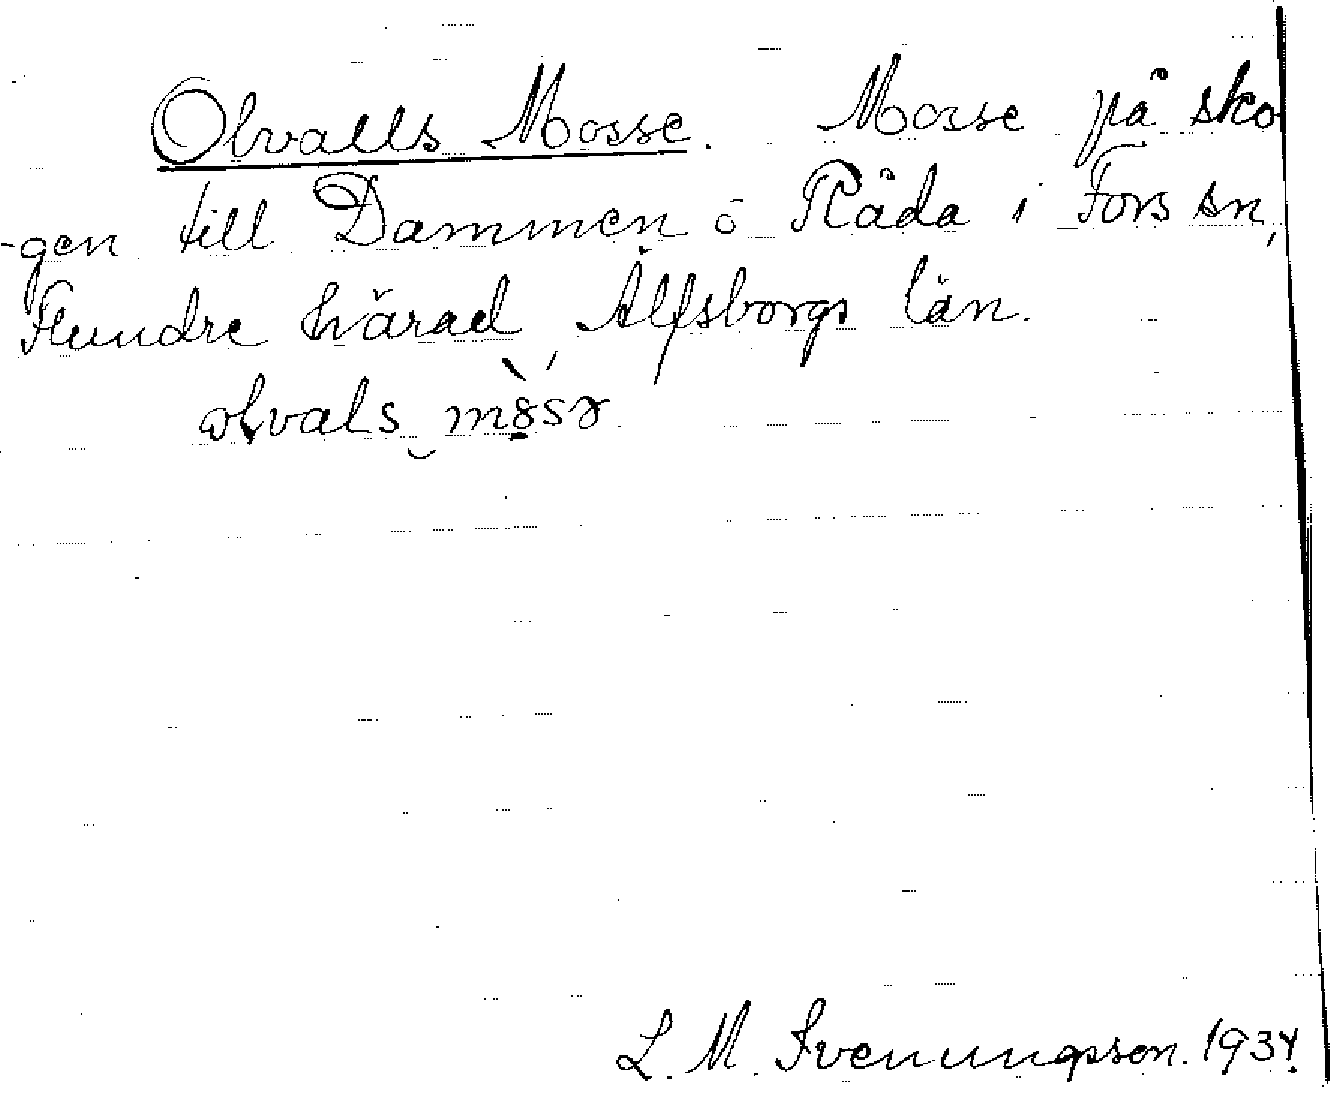 Olvalls Mosse. Mosse på sko
-gen till Dammen ö Råda i Fors sn,
Flundre härad, Älfsborgs län.
L. M. Svenungsson. 1934.